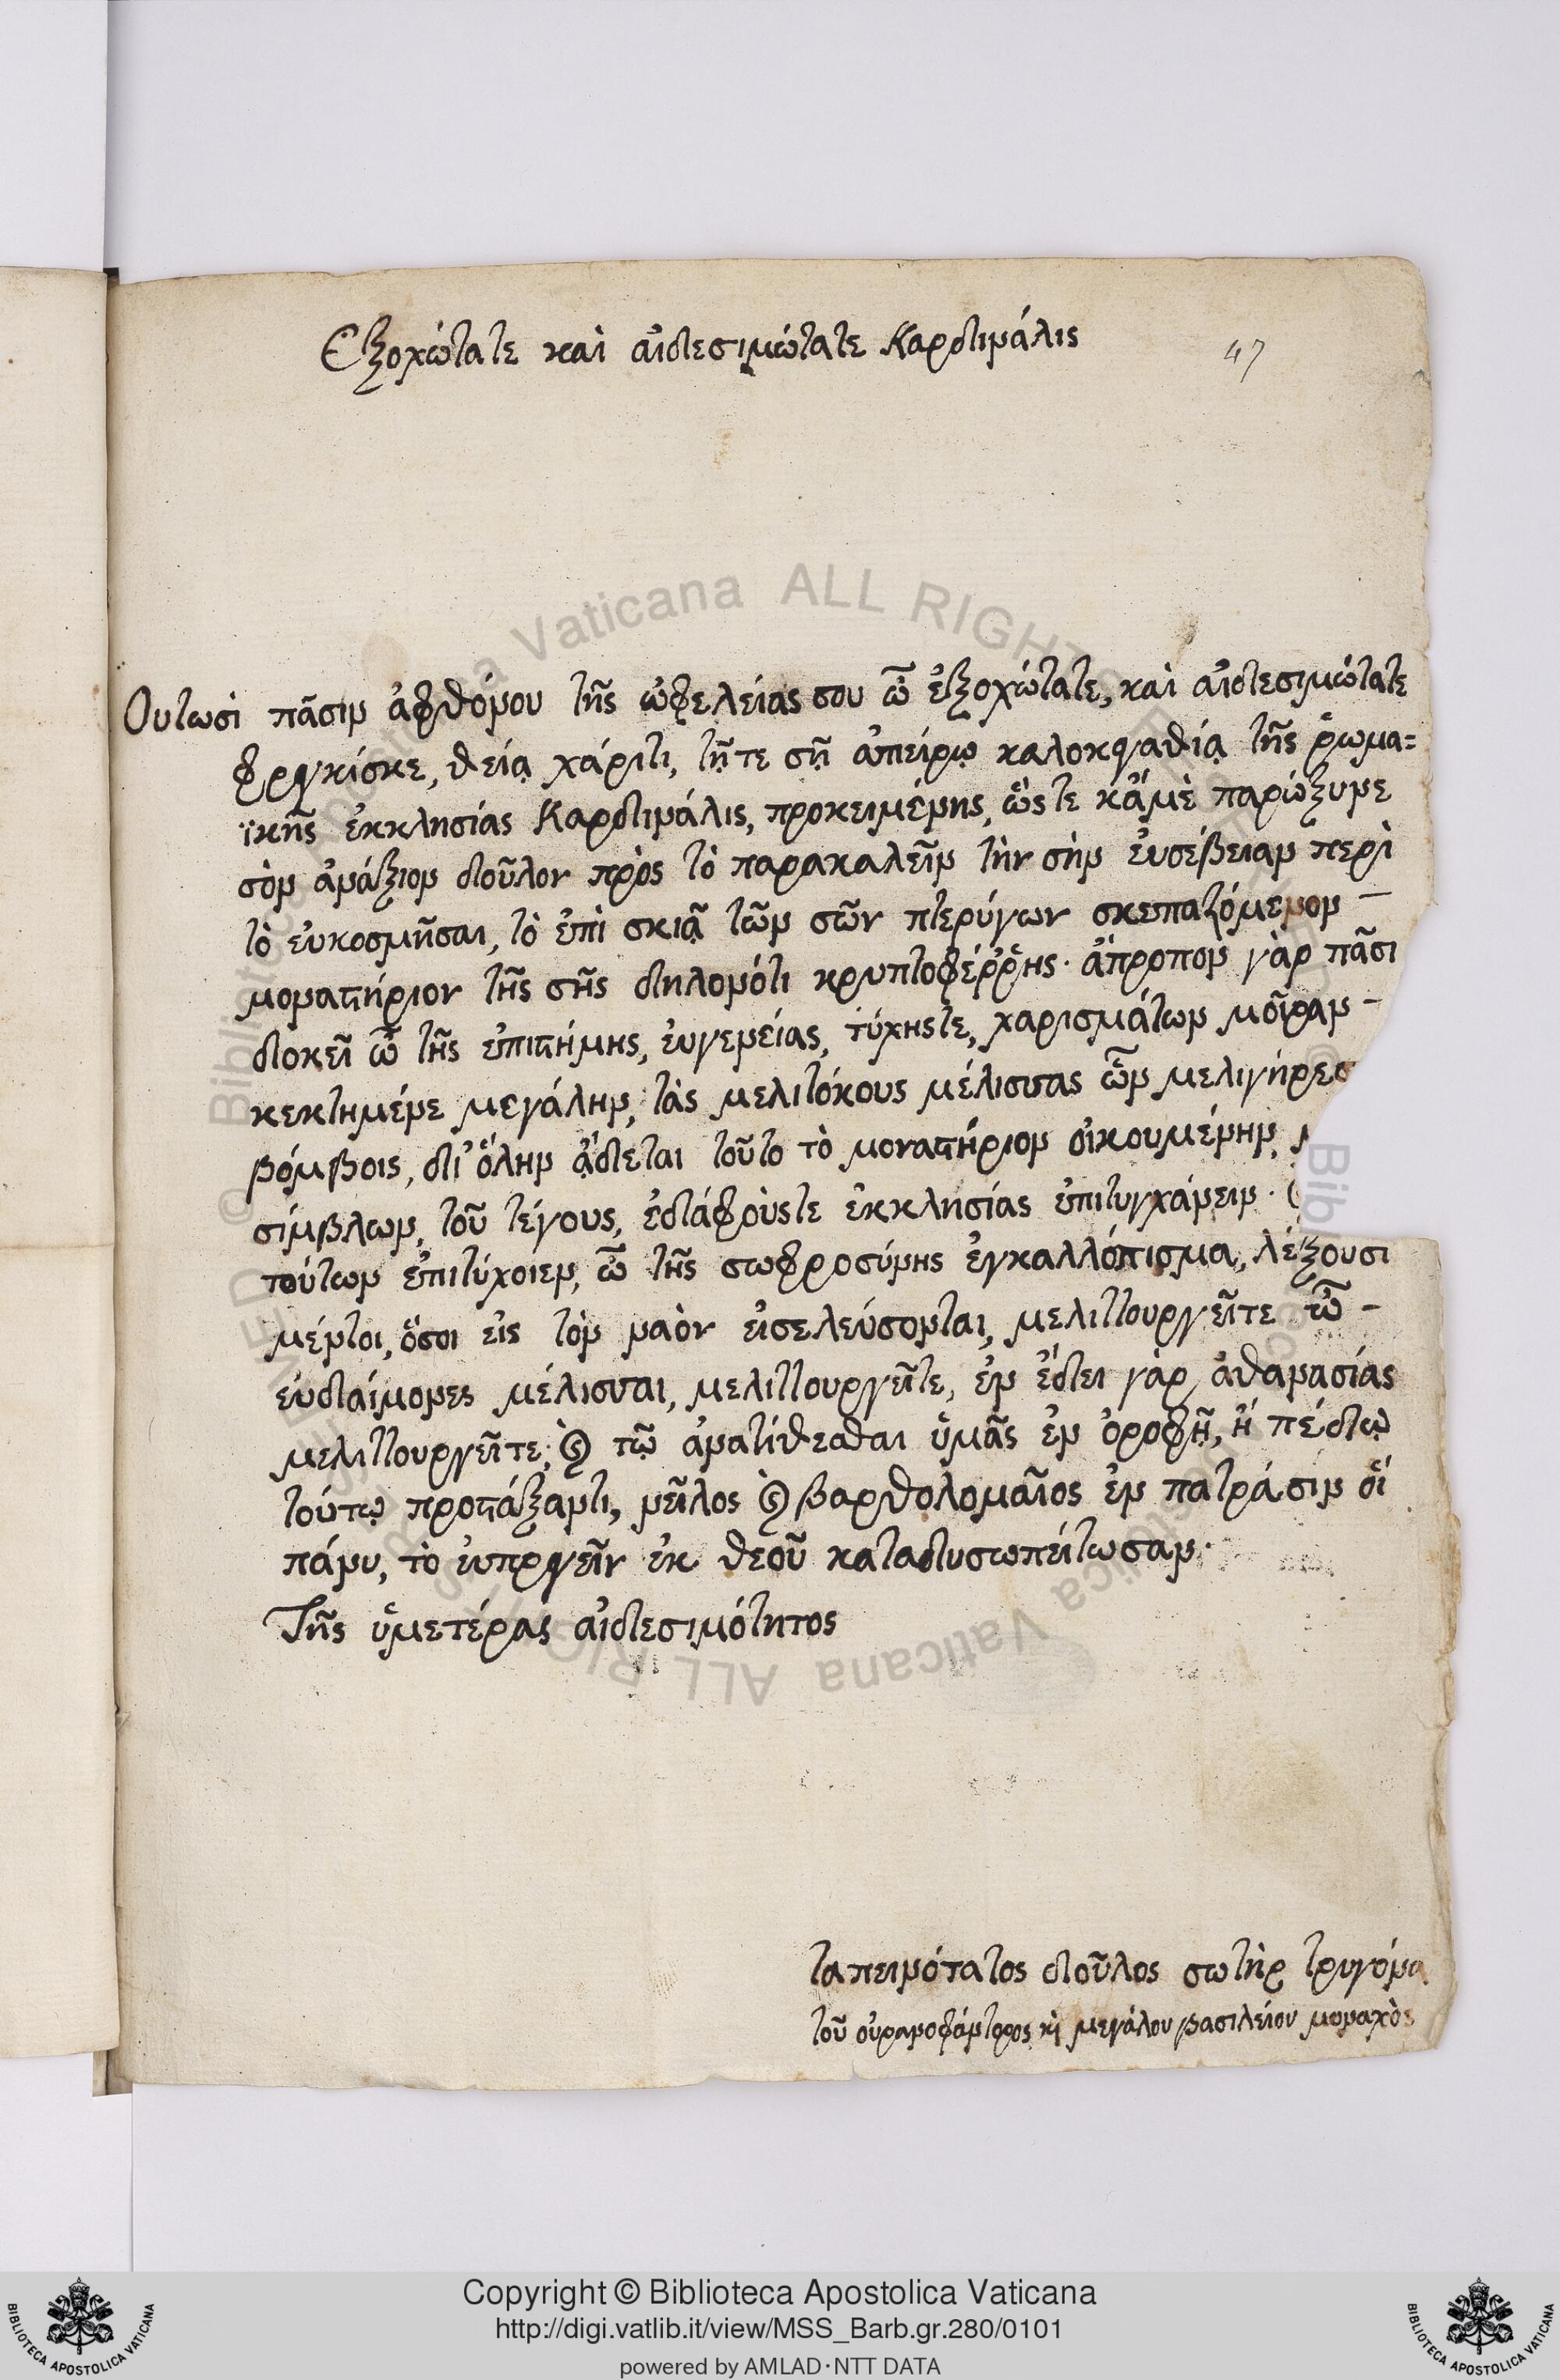 Ἐξοχώτατε καὶ αἰδεσιμώτατε Καρδινάλις
47
Οὑτωσὶ πᾶσιν ἀφθόνου τῆς ὠφελείας σου ὦ ἐξοχώτατε, καὶ αἰδεσιμώτατε
φραγκίσκε, θείᾳ χάριτι, τῇτε σῇ ἀπείρῳ καλοκαγαθίᾳ τῆς ῥωμα=
ϊκῆς ἐκκλησίας Καρδινάλις, προκειμένης, ὥς τε κἄμὲ παρώξυνε
σὸν ἀνάξιον δοῦλον πρὸς τὸ παρακαλεῖν τὴν σὴν ἐυσέβειαν περὶ
τὸ εὐκοσμῆσαι, τὸ ἐπὶ σκιᾷ τῶν σῶν πτερύγων σκεπαζόμενον –
μοναστήριον τῆς σῆς δηλονότι κρυπτοφέῤῥης· ἄπροπον γὰρ πᾶσι
δοκεῖ ὦ τῆς ἐπιστήμης, ἐυγενείας, τύχηςτε, χαρισμάτων μοῖραν –
κεκτημένε μεγάλην, τὰς μελιτόκους μέλισσας ὧν μελιγήρεσ
βόμβοις, δι' ὅλην ᾄδεται τοῦτο τὸ μοναστήριον οἰκουμένην,
σίμβλων, τοῦ τέγους, ἐδάφοὺςτε ἐκκλησίας ἐπιτυγχάνειν·
τούτων ἐπιτύχοιεν, ὦ τῆς σωφροσύνης ἐγκαλλόπισμα, λέξουσι
μέντοι, ὅσοι εἰς τὸν ναὸν εἰσελεύσονται, μελιττουργεῖτε ὦ –
εὐδαίμονες μέλισσαι, μελιττουργεῖτε, ἐν ἔδει γὰρ ἀθανασίας
μελιττουργεῖτε; καὶ τῷ ἀνατίθεσθαι ὑμᾶς ἐν ὀροφῇ, ἢ πέδῳ
τούτῳ προστάξαντι, νεῖλος καὶ βαρθολομαῖος ἐν πατράσιν οἵ
πάνυ, τὸ ἐυπραγεῖν ἐκ θεοῦ καταδυσωπείτωσαν·
Τῆς ὑμετέρας αἰδεσιμότητος
ταπεινότατος δοῦλος σωτὴρ τρυγόνα
τοῦ οὐρανοφάντορος κὶ μεγάλου βασιλείου μοναχὸς
Copyright © Biblioteca Apostolica Vaticana
http://digi.vatlib.it/view/MSS_Barb.gr.280/0101
powered by AMLAD·NTT DATA